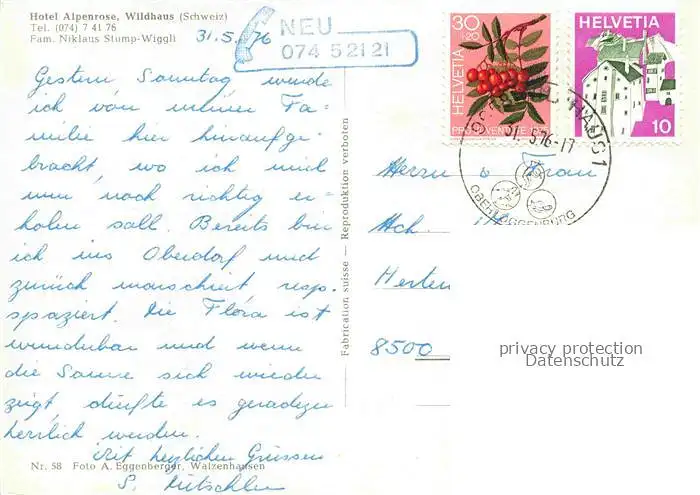 Hotel Alpenrose, Wildhaus (Schweiz)
Tel. (074) 7 41 76
Fam. Niklaus Stump-Wiggli
31.5.76
NEU
074 5 21 21
Gestern Sonntag wurde
ich von meiner Fa-
milie hier hinaufge-
bracht, wo ich mich
nun noch richtig er-
holen soll. Bereits bin
ich ins Oberdorf und
zurück marschiert resp.
spaziert. Die Flora ist
wunderbar und wenn
die Sonne sich wieder
zeigt, dürfte es geradezu
herrlich werden.
Mit herzlichen Grüssen
S.
Nr. 58 Foto A. Eggenberger, Walzenhausen
Fabrication suisse — Reproduktion verboten
30
+20
HELVETIA
PRO JUVENTUTE 1975
HELVETIA
10
31.5.76-17
OBERTOGGENBURG
Herrn u Frau
Hch.
Herten
8500
privacy protection
Datenschutz